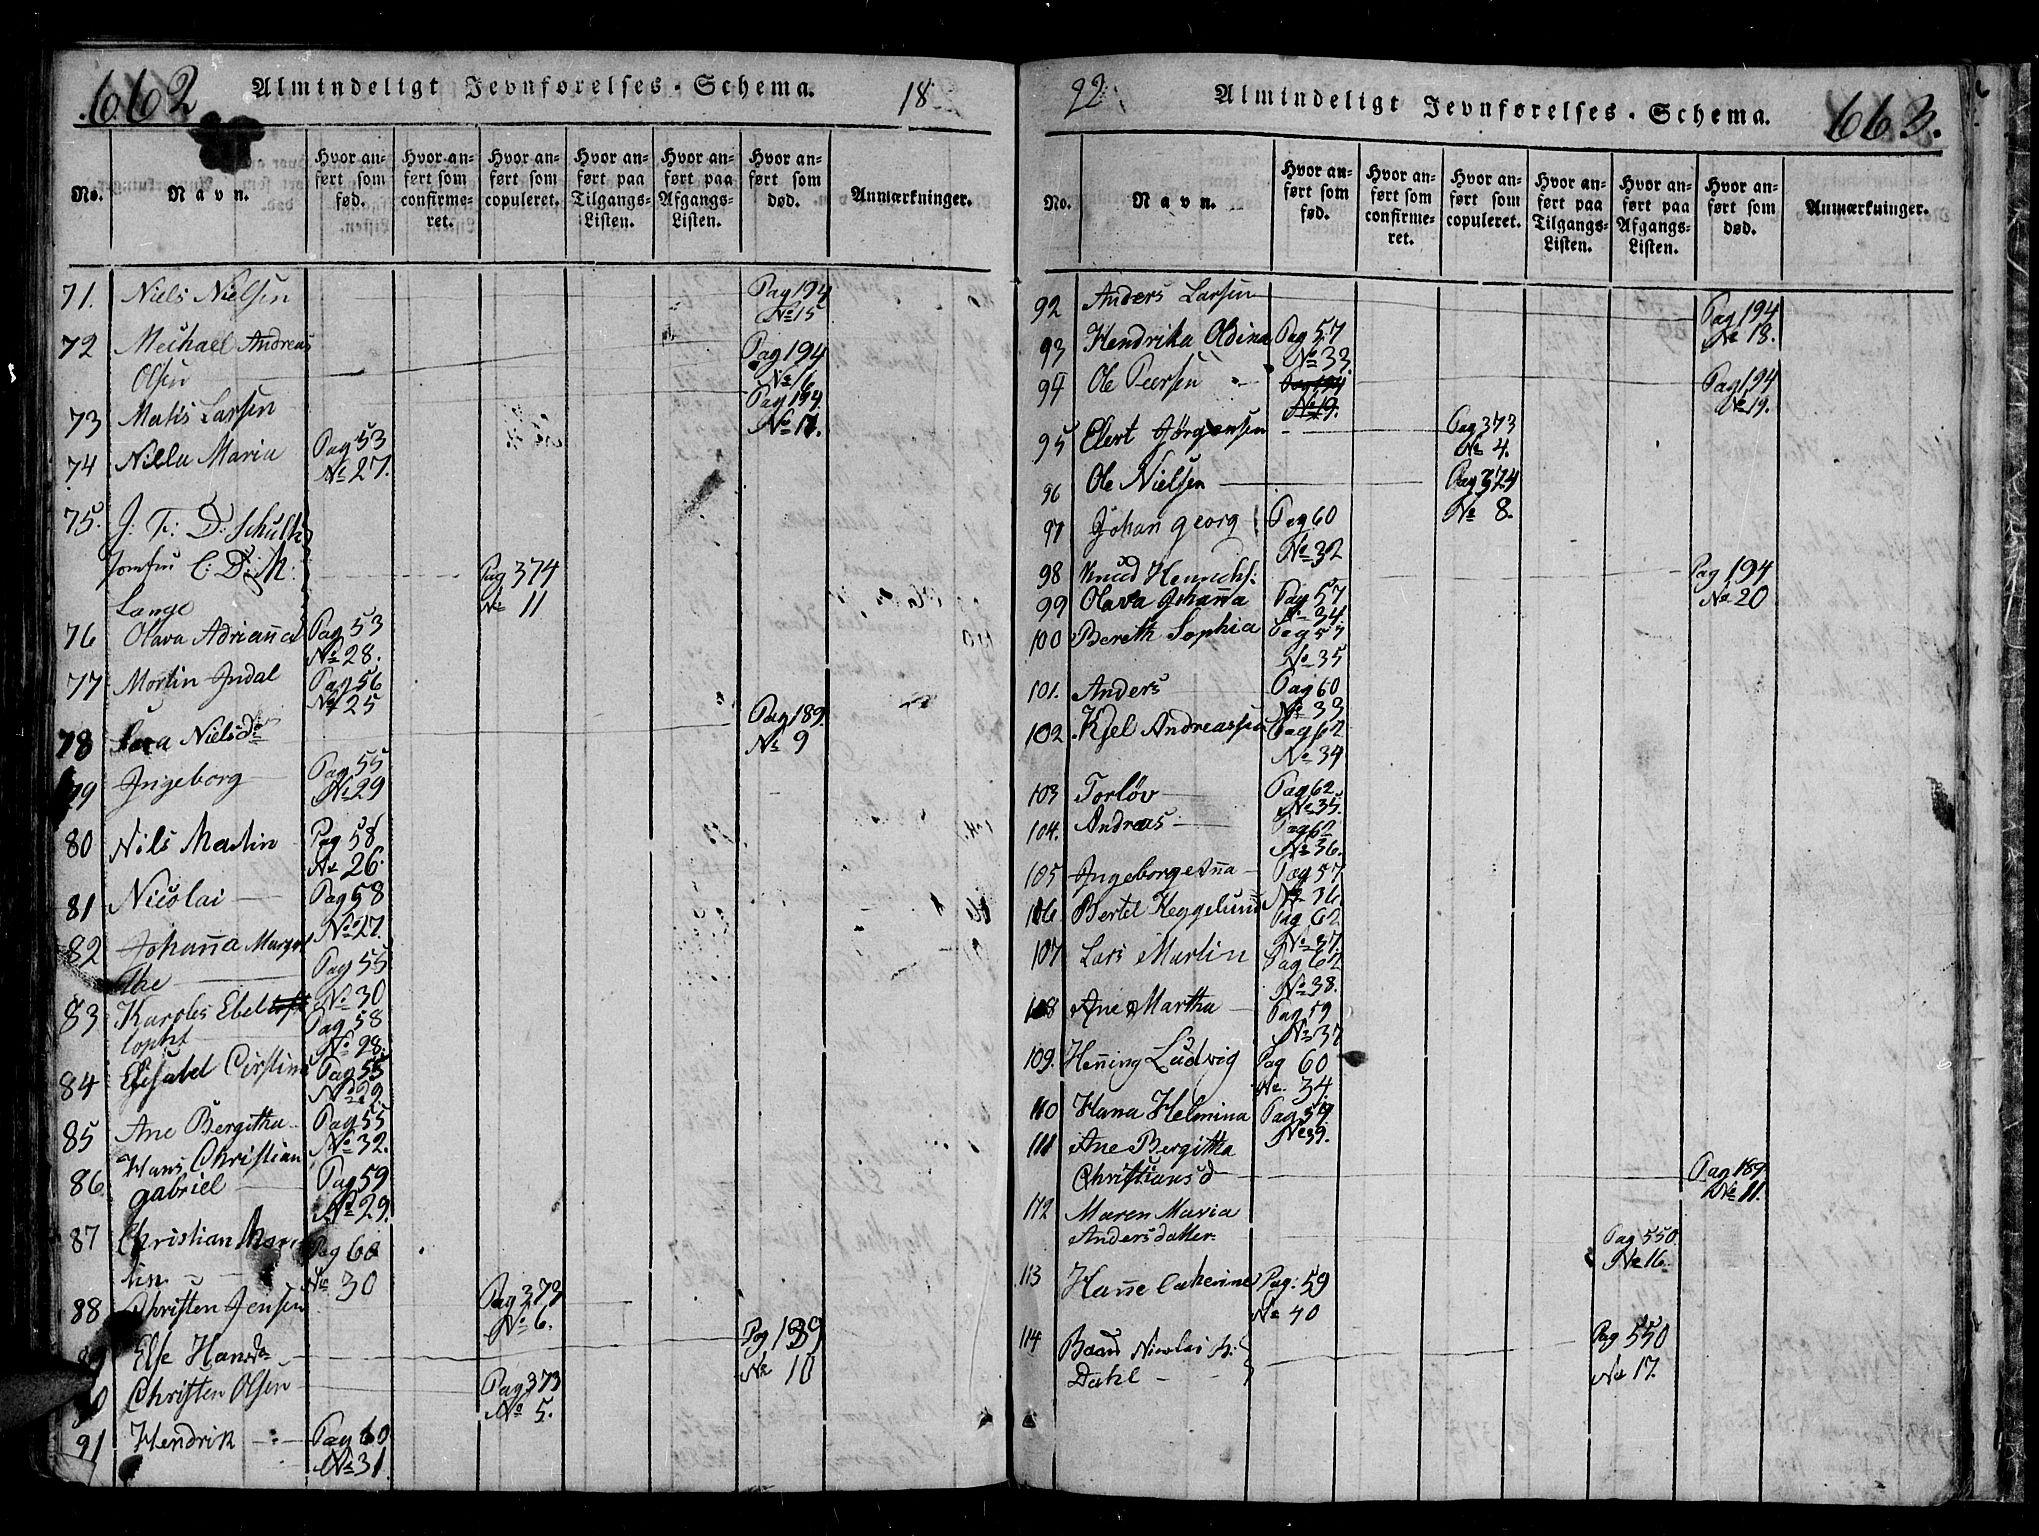 662 Almindeligt Jevnførelses-Schema. 18
No. Navn. Hvor anført som fød. Hvor anført som confirmeret. Hvor anført som copuleret. Hvor anført paa Tilgangs-Listen. Hvor anført paa Afgangs-Listen. Hvor anført som død. Anmærkninger.
71. Niels Nielsen Pag 194
No 15
72 Michael Andreas Pag 194
Olsen No 16
73 Matis Larsen Pag 194
No 17.
74 Nilla Maria Pag 53
No 27.
75. J. F: D: Schultz
Jomfru C: D: M: Pag 374
Lange No 11
76 Olava Adrianna Pag 53
No 28.
77 Mortin Indal Pag 56
No 25
78 Sara Nielsdr Pag 189
No 9
79 Ingeborg Pag 55
No 29
80 Nils Martin Pag 58
No 26.
81 Nicolai Pag 58
No 27
82 Johanna Margre
the Pag 55
No 30
83 Karoles Ebel
Pag 58
No 28.
84 Elisabet Cirstina Pag 55
85 Ane Bergitha Pag 55
No 32.
86 Hans Christian
Gabriel Pag 59
No 29.
87 Christian Mar
tin Pag 60
No 30
88 Christen Jensen Pag 373
No 6.
Else Hansdr Pag 189
No 10
90 Christen Olsen Pag 373
No 5.
91 Hendrik Pag 60
No 31.
22 Almindeligt Jevnførelses-Schema. 663.
No. Navn. Hvor anført som fød. Hvor anført som confirmeret. Hvor anført som copuleret. Hvor anført paa Tilgangs-Listen. Hvor anført paa Afgangs-Listen. Hvor anført som død. Anmærkninger.
92 Anders Larsen Pag 194
No 18.
93 Hendrika Oldina Pag 57
No 33.
94 Ole Peersen Pag 194 Pag 194
No 19. No 19.
95 Elert Jørgensen Pag 373
No 4.
96 Ole Nielsen Pag 374
No 8.
97 Johan Georg Pag 60
No 32
98 Knud Henrichs: Pag 194
No 20
99 Olava Johanna Pag 57
No 34.
100 Bereth Sophia Pag 57
No 35
101. Anders Pag 60
No 33
102 Kjel Andreassen Pag 62
No 34
103 Torløv Pag 62
No 35.
104. Andreas Pag 62
No 36.
105 Ingeborg Anna Pag 57
No 36.
106 Bertel Heggelund Pag 62
No 37.
107 Lars Martin Pag 62
No 38.
108 Ane Martha Pag 59
No 37
109. Henning Ludvig Pag 60
No. 34
110 Hana Helmina Pag 59
No 39.
111 Ane Bergitha
Christiansd Pag 189
No 11.
112 Maren Maria
Andersdatter Pag 550
No 16
113 Hanne Catherine Pag: 59
No 40
114 Baard Nicolai A: Pag 550
Dahl No 17.